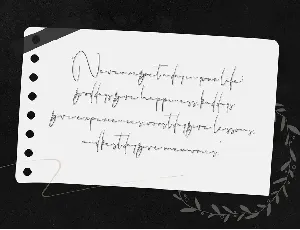 Never regret a day in your life
good days give happiness bad days
give experience worst days give lessons
and best days give memories